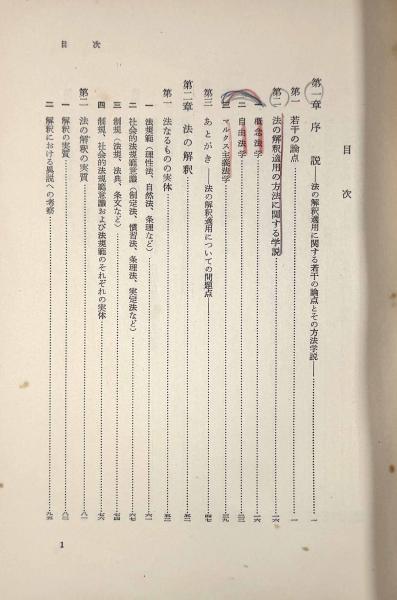 目次
目次
第一章 序説——法の解釈適用に関する若干の論点とその方法学説——……一
第一 若干の論点……一
第二 法の解釈適用の方法に関する学説……一六
一 概念法学……一六
二 自由法学……二三
三 マルクス主義法学……三九
第三 あとがき——法の解釈適用についての問題点——……四七
第二章 法の解釈……五三
第一 法なるものの実体……五三
一 法規範(理性法、自然法、条理など)……六一
二 社会的法規範意識(制定法、慣習法、条理法、実定法など)……六七
三 制規(法規、法典、条文など)……七四
四 制規、社会的法規範意識および法規範のそれぞれの実体……七六
第二 法の解釈の実質……八一
一 解釈の実質……八三
二 解釈における異説への考察……九五
1